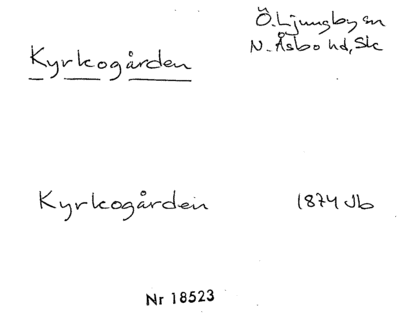 Ö. Ljungby sn
Kyrkogården
N. Åsbo hd, Sk
Kyrkogården 1874 Jb
Nr 18523